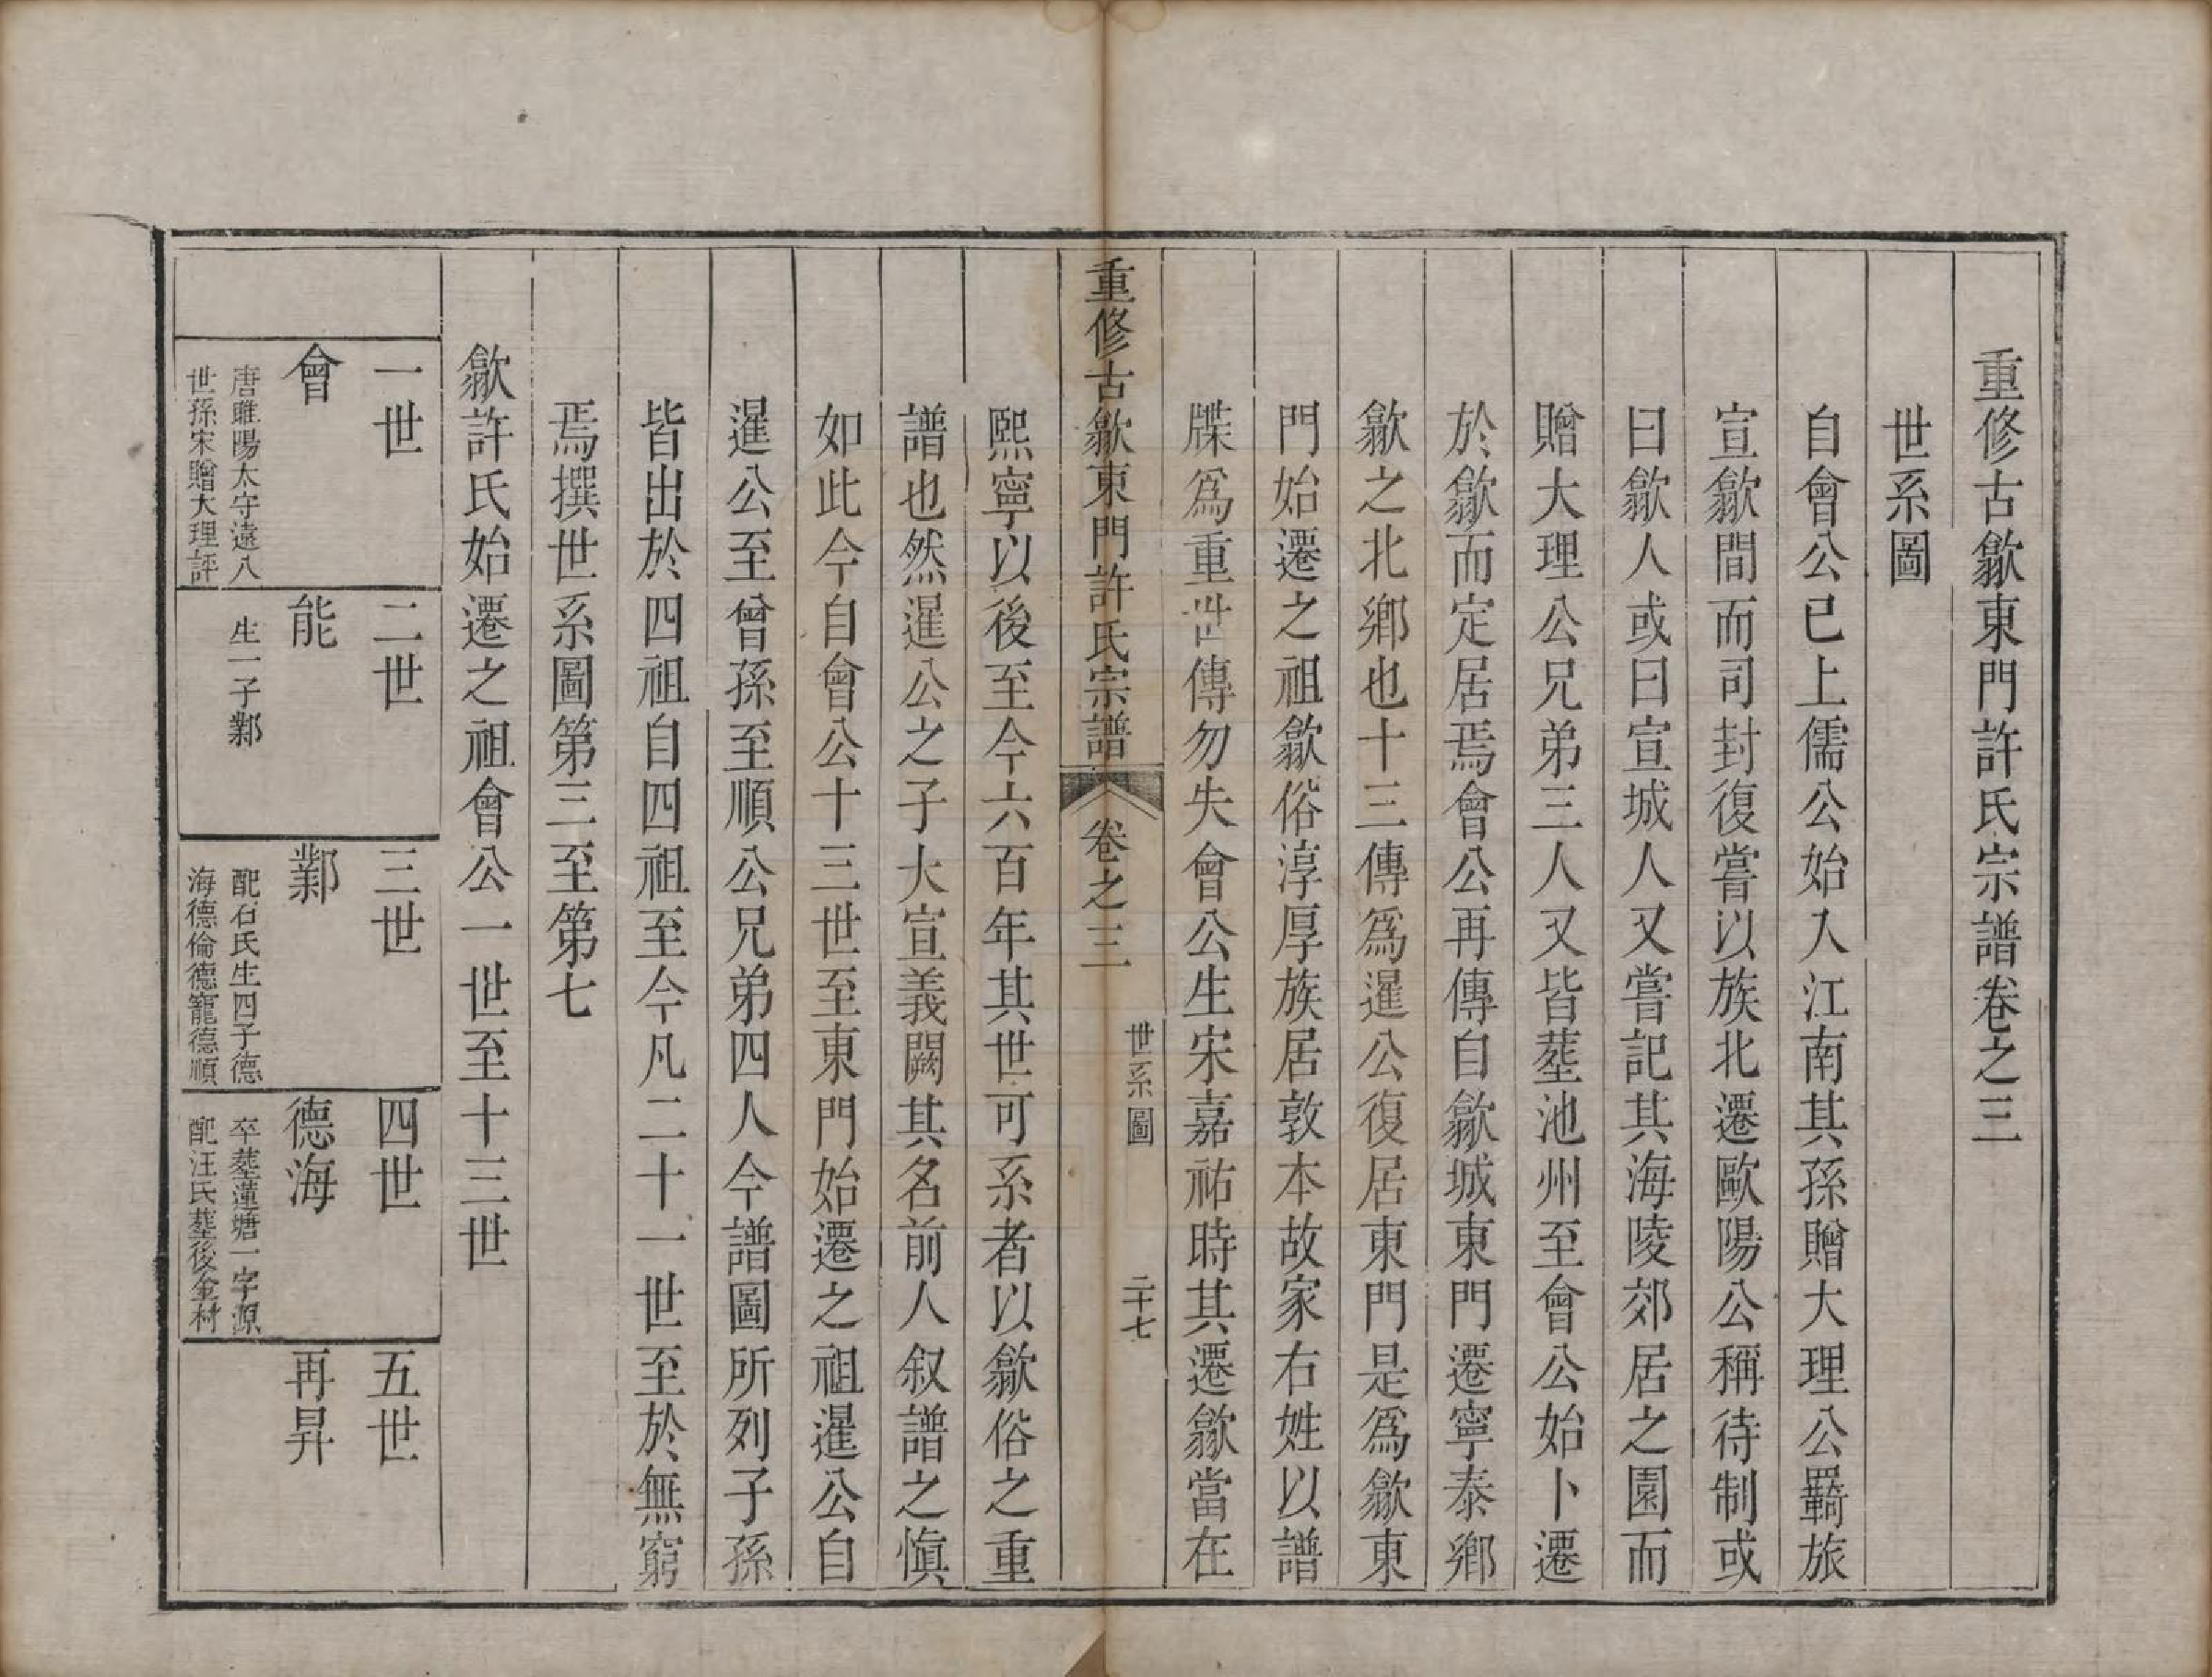 重修古歙東門許氏宗譜卷之三
世系圖
自會公已上儒公始入江南其孫贈大理公羈旅
宣歙間而司封復嘗以族北遷歐陽公稱待制或
曰歙人或曰宣城人又嘗記其海陵郊居之園而
贈大理公兄弟三人又皆塟池州至會公始卜遷
於歙而定居焉會公再傳自歙城東門遷寧泰鄉
歙之北鄉也十三傳爲暹公復居東門是爲歙東
門始遷之祖歙俗淳厚族居敦本故家右姓以譜
牒爲重世傳勿失會公生宋嘉祐時其遷歙當在
重修古歙東門許氏宗譜 卷之三 世系圖 二十七
熙寧以後至今六百年其世可系者以歙俗之重
譜也然暹公之子大宣義闕其名前人叙譜之愼
如此今自會公十三世至東門始遷之祖暹公自
暹公至曾孫至順公兄弟四人今譜圖所列子孫
皆出於四祖自四祖至今凡二十一世至於無窮
焉撰世系圖第三至第七
歙許氏始遷之祖會公一世至十三世
一世
會
唐睢陽太守遠八
世孫宋贈大理評
二世
能
生一子鄴
三世
鄴
配石氏生四子德
海德倫德寵德順
四世
德海
卒塟蓮塘一字源
配汪氏塟後金村
五世
再昇